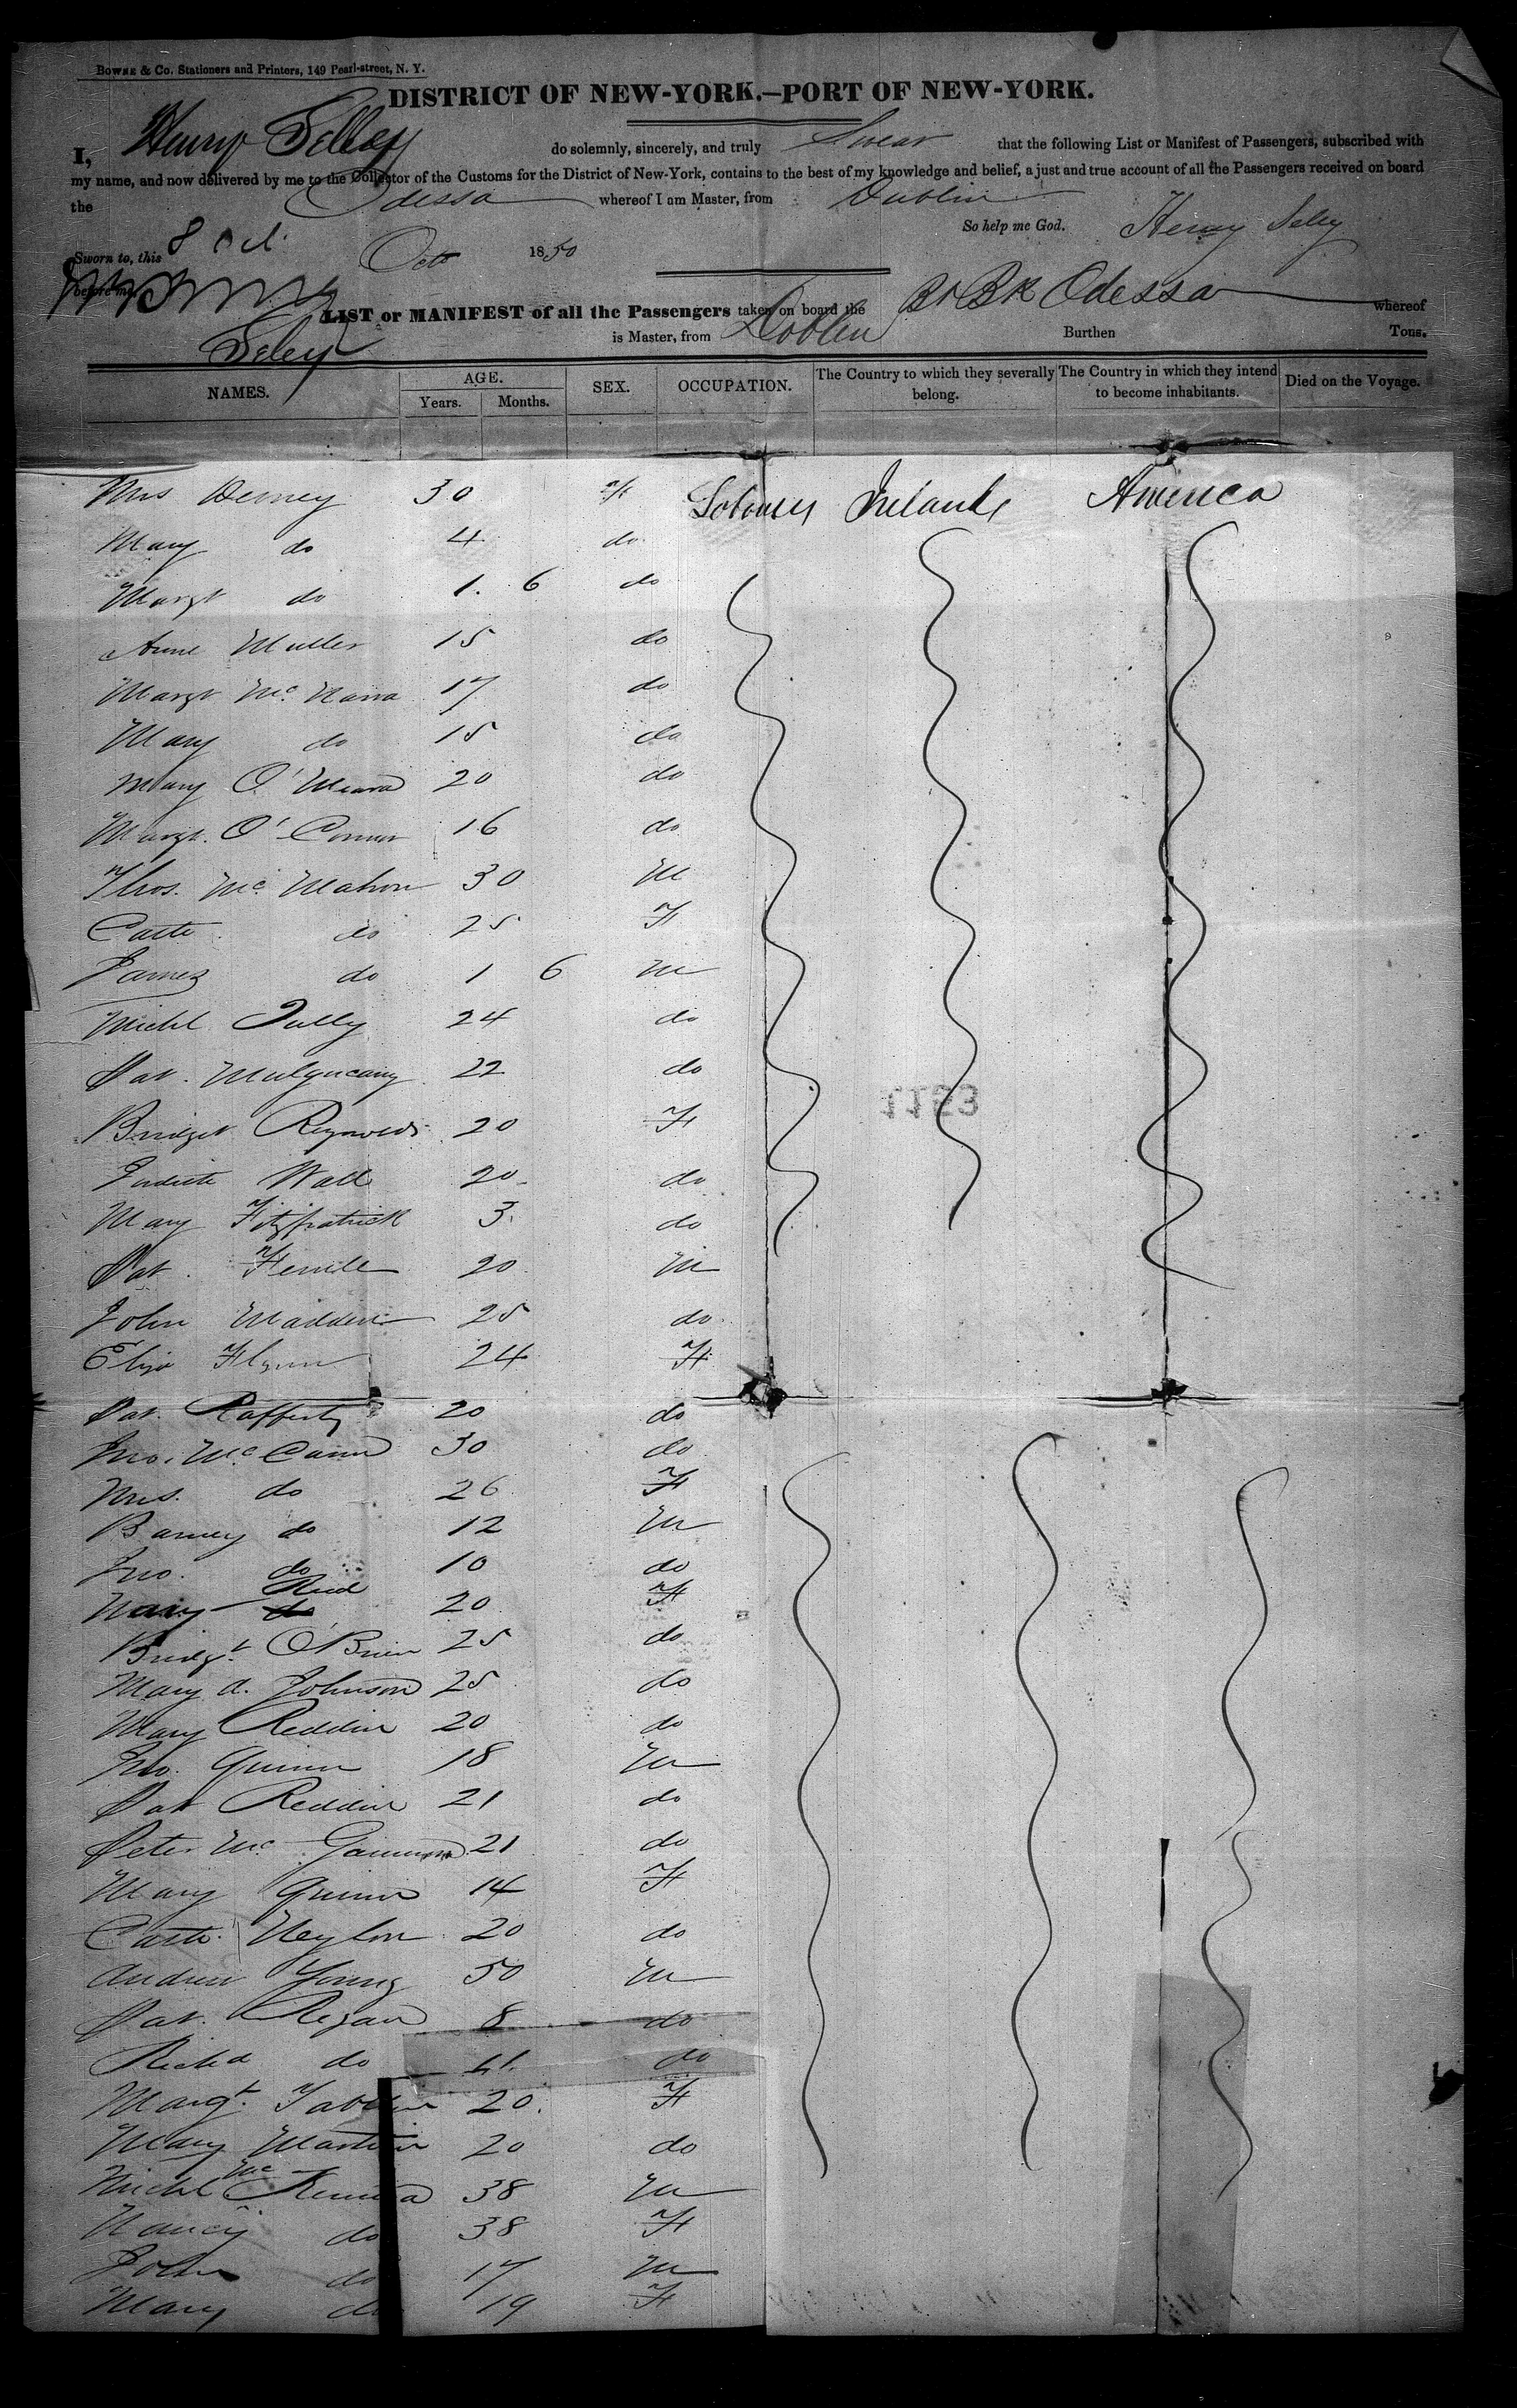 BOWNE & Co. Stationers and Printers, 149 Pearl-street, N. Y.
DISTRICT OF NEW-YORK.—PORT OF NEW-YORK.
I, Henry Selley do solemnly, sincerely, and truly Swear that the following List or Manifest of Passengers, subscribed with
my name, and now delivered by me to the Collector of the Customs for the District of New-York, contains to the best of my knowledge and belief, a just and true account of all the Passengers received on board
the Odessa whereof I am Master, from Dublin
So help me God. Henry Seley
Sworn to, this 8 Oct Octo 1850
before me,
LIST or MANIFEST of all the Passengers taken on board the Br BK Odessa whereof
Seley is Master, from Doblin Burthen Tons.
NAMES. AGE. SEX. OCCUPATION. The Country to which they severally belong. The Country in which they intend to become inhabitants. Died on the Voyage.
Years. Months.
Mrs 30 F Ireland America
Mary do 4 do
Margt do 1. 6 do
Anne Muller 15 do
Margt Mc 17 do
Mary do 15 do
Mary O'Meara 20 do
Margt. O'Connor 16 do
Thos. Mc Mahon 30 M
Cath do 25 F
James do 1 6 M
Michl Tully 24 do
Pat. 22 do
Bridget Reynolds 20 F
Judith Wall 20 do
Mary Fitzpatrick 3. do
Pat. 20 M
John Madden 25 do
Eliza Flynn 24 F
Pat. Rafferty 20 do
Jno. Mc Cann 30 do
Mrs. do 26 F
Barney do 12 M
Jno. do 10 do
Mary Reid 20 F
Bridgt. O'Brien 25 do
Mary A. Johnson 25 do
Mary Reddin 20 do
Jno. Quinn 18 M
Pat Reddin 21 do
Peter Mc 21 do
Mary Quinn 14 F
Cath. Neylon 20 do
Andrew Young 50 M
Pat. Regan 8 do
Richd do 11. do
Margt. 20. F
Mary Martin 20 do
Michl Mc Kenna 38 M
Nancy do 38 F
John do 17 M
Mary do 19 F